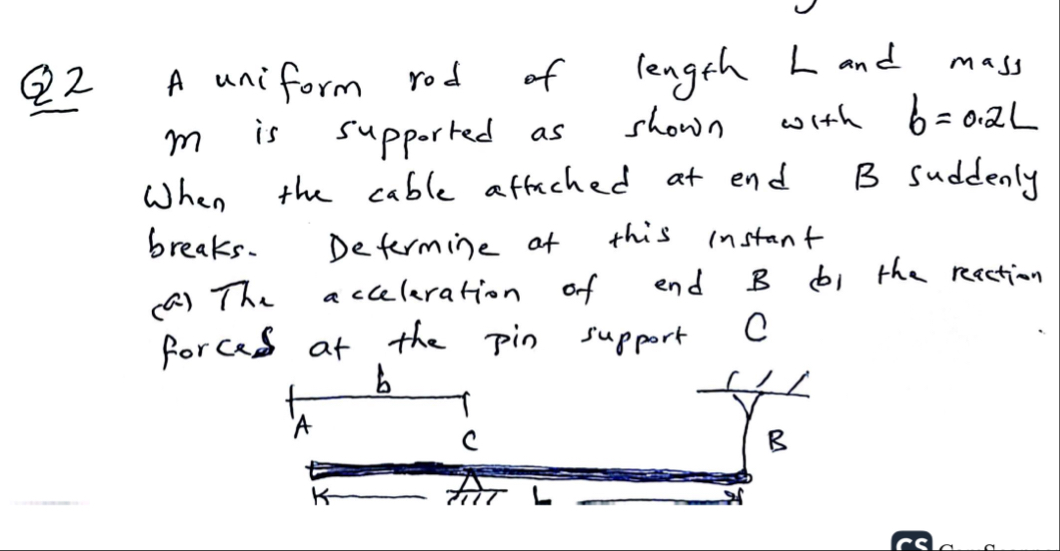 Q2 A uniform rod of length L and mass
m is supported as shown with b = 0.2L
When the cable attached at end B suddenly
breaks. Determine at this instant
(a) The acceleration of end B (b) the reaction
forces at the pin support C
b
A
C
B
L
CS